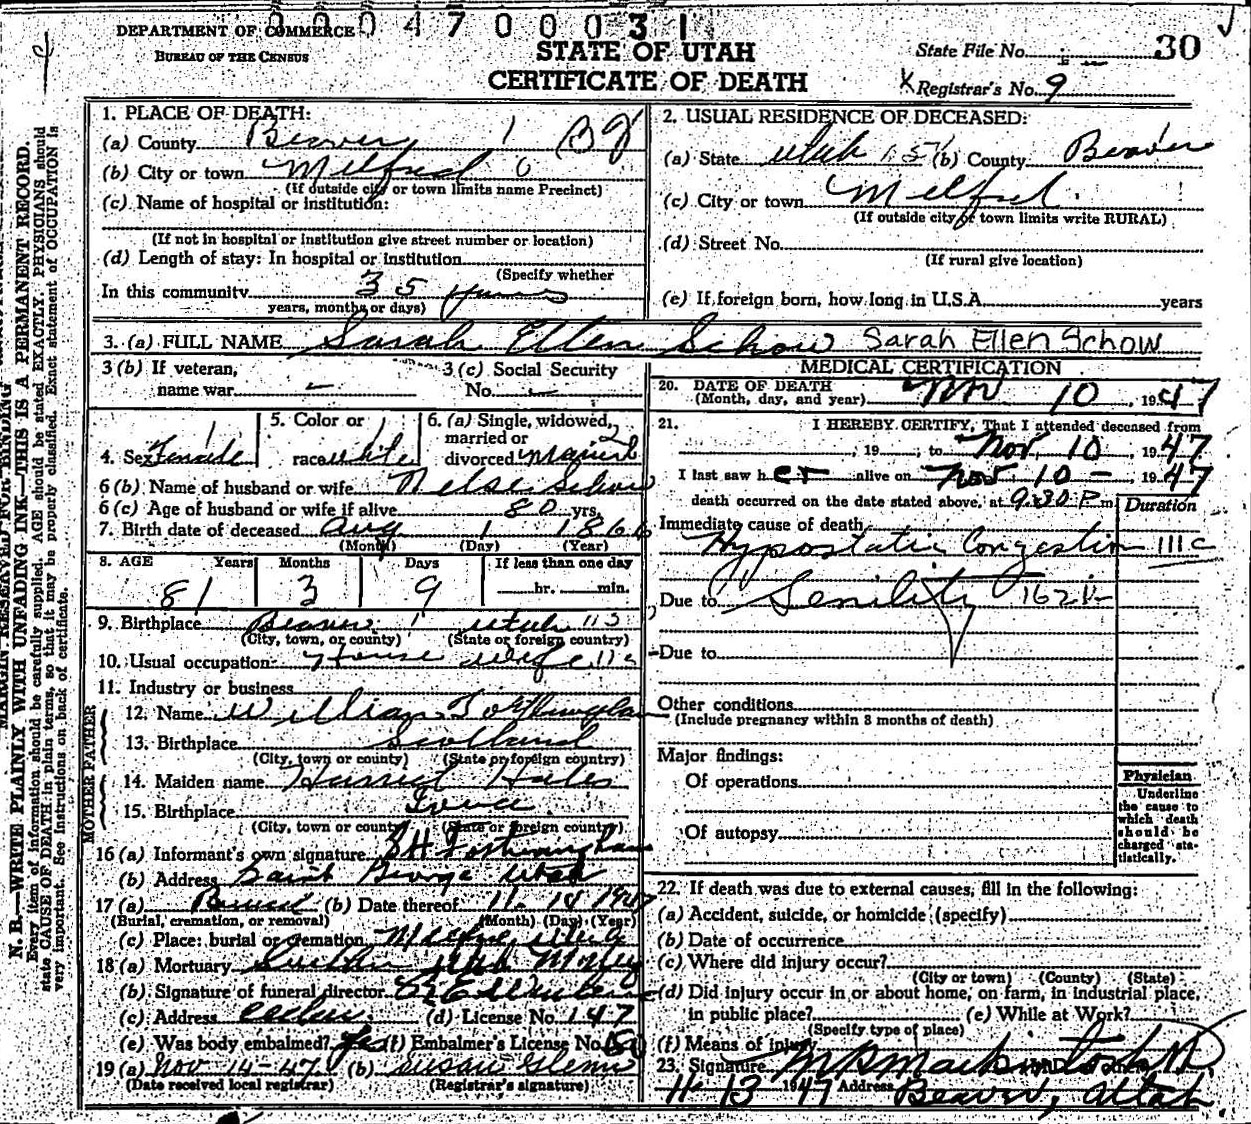 00047000031
DEPARTMENT OF COMMERCE
BUREAU OF THE CENSUS
STATE OF UTAH
CERTIFICATE OF DEATH
State File No. 30
Registrar's No. 9
MARGIN RESERVED FOR BINDING
N. B.—WRITE PLAINLY WITH UNFADING INK—THIS IS A PERMANENT RECORD.
Every item of information should be carefully supplied. AGE should be stated EXACTLY. PHYSICIANS should
state CAUSE OF DEATH in plain terms, so that it may be properly classified. Exact statement of OCCUPATION is
very important. See instructions on back of certificate.
1. PLACE OF DEATH:
(a) County Beaver
(b) City or town Milford
(If outside city or town limits name Precinct)
(c) Name of hospital or institution:
(If not in hospital or institution give street number or location)
(d) Length of stay: In hospital or institution
(Specify whether
In this community 35 years
years, months or days)
2. USUAL RESIDENCE OF DECEASED:
(a) State Utah (b) County Beaver
(c) City or town Milford
(If outside city or town limits write RURAL)
(d) Street No.
(If rural give location)
(e) If foreign born, how long in U.S.A. years
3. (a) FULL NAME Sarah Ellen Schow Sarah Ellen Schow
3 (b) If veteran,
name war –
3 (c) Social Security
No. –
4. Sex Female
5. Color or
race white
6. (a) Single, widowed,
married or
divorced Married
6 (b) Name of husband or wife Nelse Schow
6 (c) Age of husband or wife if alive 80 yrs.
7. Birth date of deceased Aug 1 1866
(Month) (Day) (Year)
8. AGE Years Months Days If less than one day
81 3 9 hr. min.
9. Birthplace Beaver Utah
(City, town, or county) (State or foreign country)
10. Usual occupation House wife
11. Industry or business
FATHER
12. Name William Fotheringham
13. Birthplace Scotland
(City, town or county) (State or foreign country)
MOTHER
14. Maiden name Harriet Hales
15. Birthplace
(City, town or county) (State or foreign country)
16 (a) Informant's own signature Fotheringham
(b) Address Saint George Utah
17 (a) Burial (b) Date thereof 11- 1947
(Burial, cremation, or removal) (Month) (Day) (Year)
(c) Place: burial or cremation Milford, Utah
18 (a) Mortuary
(b) Signature of funeral director
(c) Address Cedar (d) License No. 147
(e) Was body embalmed? Yes (f) Embalmer's License No.
19 (a) Nov 14-47 (b) Susan Glenn
(Date received local registrar) (Registrar's signature)
MEDICAL CERTIFICATION
20. DATE OF DEATH
(Month, day, and year) Nov 10, 1947
21. I HEREBY CERTIFY, That I attended deceased from
, 19 , to Nov. 10, 1947
I last saw her alive on Nov 10 – 1947
death occurred on the date stated above, at 9:30 P.m
Duration
Immediate cause of death
Hypostatic Congestion 111c
Due to Senility 162
Due to
Other conditions
(Include pregnancy within 3 months of death)
Major findings:
Of operations
Of autopsy
Physician
Underline
the cause to
which death
should be
charged sta-
tistically.
22. If death was due to external causes, fill in the following:
(a) Accident, suicide, or homicide (specify)
(b) Date of occurrence
(c) Where did injury occur?
(City or town) (County) (State)
(d) Did injury occur in or about home, on farm, in industrial place,
in public place? (e) While at Work?
(Specify type of place)
(f) Means of injury
23. Signature
11-13 1947 Address Beaver, Utah